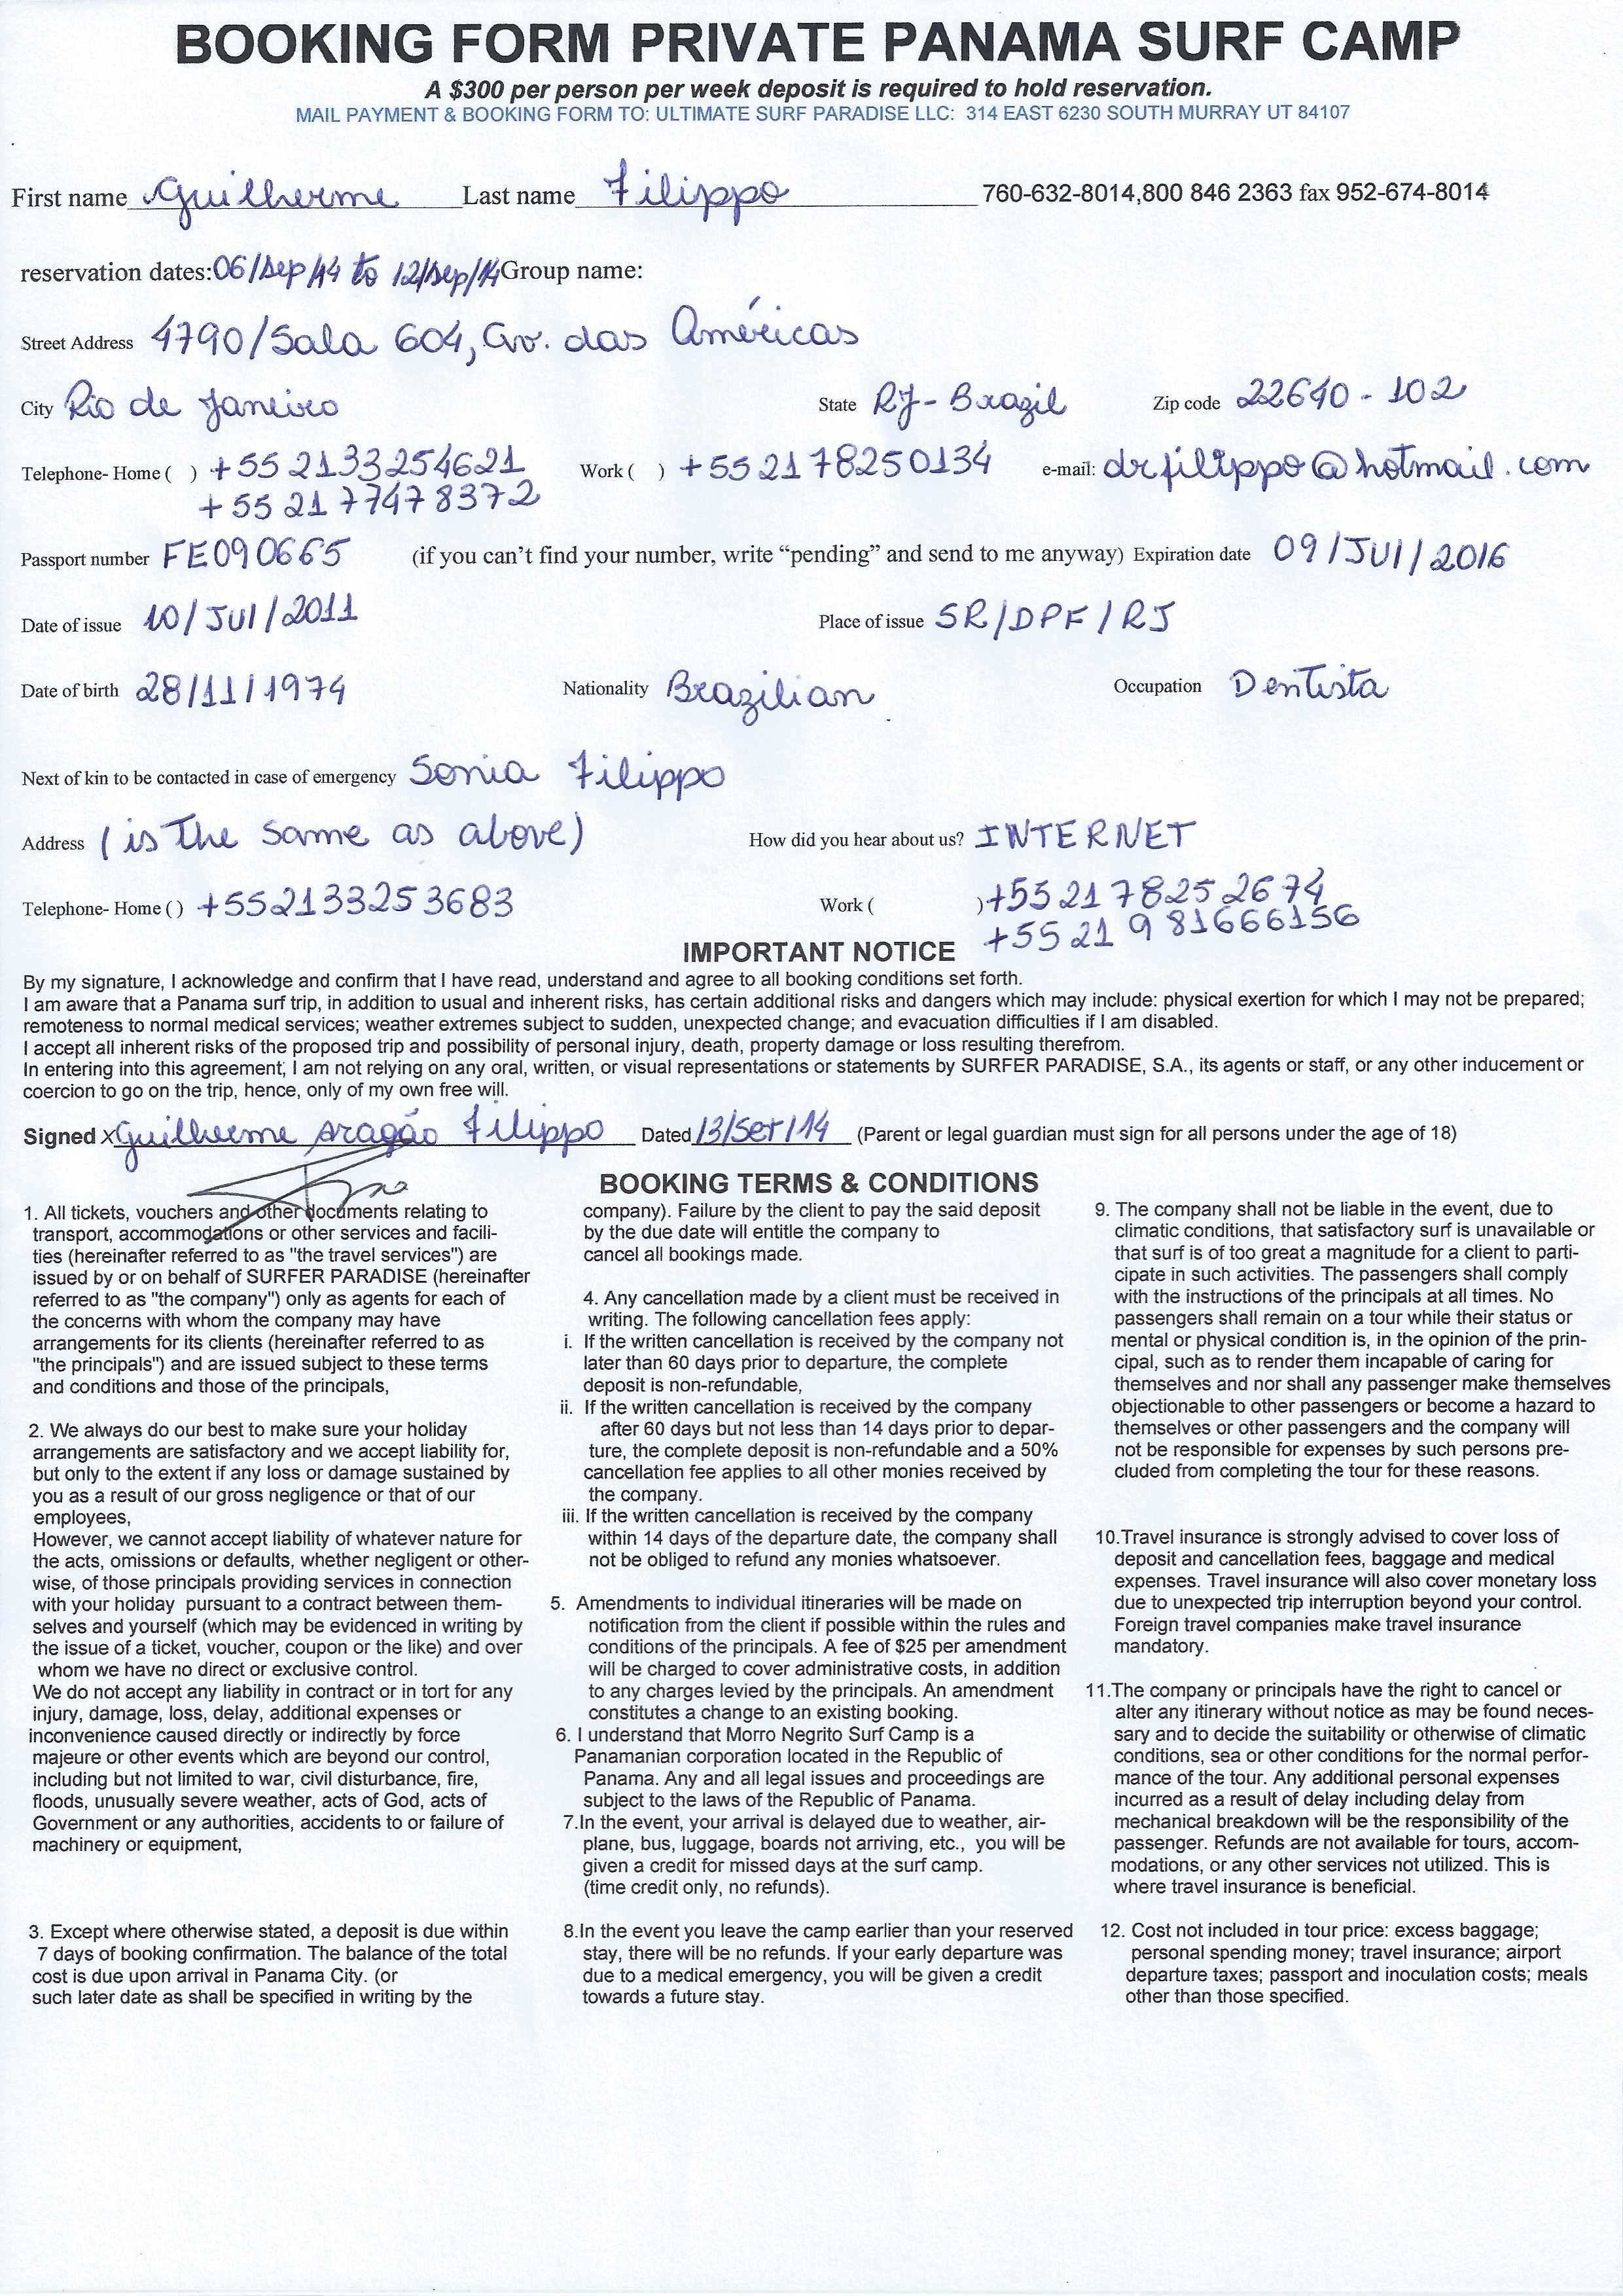 BOOKING FORM PRIVATE PANAMA SURF CAMP
A $300 per person per week deposit is required to hold reservation.
MAIL PAYMENT & BOOKING FORM TO: ULTIMATE SURF PARADISE LLC: 314 EAST 6230 SOUTH MURRAY UT 84107
First name Guilherme Last name Filippo 760-632-8014,800 846 2363 fax 952-674-8014
reservation dates: 06/Sep/14 to 12/Sep/14 Group name:
Street Address 4790/Sala 604, Av. das Américas
City Rio de Janeiro State RJ - Brazil Zip code 22640-102
Telephone- Home ( ) +55 2133254621 Work ( ) +55 21 78250134 e-mail: drfilippo@hotmail.com
+55 21 77478372
Passport number FE090665 (if you can't find your number, write “pending” and send to me anyway) Expiration date 09/JUl/2016
Date of issue 10/JUl/2011 Place of issue SR/DPF/RJ
Date of birth 28/11/1974 Nationality Brazilian Occupation Dentista
Next of kin to be contacted in case of emergency Sonia Filippo
Address (is the same as above) How did you hear about us? INTERNET
Telephone- Home ( ) +552133253683 Work ( ) +55 21 78252674
+55 21 9 81666156
IMPORTANT NOTICE
By my signature, I acknowledge and confirm that I have read, understand and agree to all booking conditions set forth.
I am aware that a Panama surf trip, in addition to usual and inherent risks, has certain additional risks and dangers which may include: physical exertion for which I may not be prepared;
remoteness to normal medical services; weather extremes subject to sudden, unexpected change; and evacuation difficulties if I am disabled.
I accept all inherent risks of the proposed trip and possibility of personal injury, death, property damage or loss resulting therefrom.
In entering into this agreement; I am not relying on any oral, written, or visual representations or statements by SURFER PARADISE, S.A., its agents or staff, or any other inducement or
coercion to go on the trip, hence, only of my own free will.
Signed X Guilherme Aragão Filippo Dated 13/Set/14 (Parent or legal guardian must sign for all persons under the age of 18)
BOOKING TERMS & CONDITIONS
1. All tickets, vouchers and other documents relating to
transport, accommodations or other services and facili-
ties (hereinafter referred to as "the travel services") are
issued by or on behalf of SURFER PARADISE (hereinafter
referred to as "the company") only as agents for each of
the concerns with whom the company may have
arrangements for its clients (hereinafter referred to as
"the principals") and are issued subject to these terms
and conditions and those of the principals,
2. We always do our best to make sure your holiday
arrangements are satisfactory and we accept liability for,
but only to the extent if any loss or damage sustained by
you as a result of our gross negligence or that of our
employees,
However, we cannot accept liability of whatever nature for
the acts, omissions or defaults, whether negligent or other-
wise, of those principals providing services in connection
with your holiday pursuant to a contract between them-
selves and yourself (which may be evidenced in writing by
the issue of a ticket, voucher, coupon or the like) and over
whom we have no direct or exclusive control.
We do not accept any liability in contract or in tort for any
injury, damage, loss, delay, additional expenses or
inconvenience caused directly or indirectly by force
majeure or other events which are beyond our control,
including but not limited to war, civil disturbance, fire,
floods, unusually severe weather, acts of God, acts of
Government or any authorities, accidents to or failure of
machinery or equipment,
3. Except where otherwise stated, a deposit is due within
7 days of booking confirmation. The balance of the total
cost is due upon arrival in Panama City. (or
such later date as shall be specified in writing by the
company). Failure by the client to pay the said deposit
by the due date will entitle the company to
cancel all bookings made.
4. Any cancellation made by a client must be received in
writing. The following cancellation fees apply:
i. If the written cancellation is received by the company not
later than 60 days prior to departure, the complete
deposit is non-refundable,
ii. If the written cancellation is received by the company
after 60 days but not less than 14 days prior to depar-
ture, the complete deposit is non-refundable and a 50%
cancellation fee applies to all other monies received by
the company.
iii. If the written cancellation is received by the company
within 14 days of the departure date, the company shall
not be obliged to refund any monies whatsoever.
5. Amendments to individual itineraries will be made on
notification from the client if possible within the rules and
conditions of the principals. A fee of $25 per amendment
will be charged to cover administrative costs, in addition
to any charges levied by the principals. An amendment
constitutes a change to an existing booking.
6. I understand that Morro Negrito Surf Camp is a
Panamanian corporation located in the Republic of
Panama. Any and all legal issues and proceedings are
subject to the laws of the Republic of Panama.
7.In the event, your arrival is delayed due to weather, air-
plane, bus, luggage, boards not arriving, etc., you will be
given a credit for missed days at the surf camp.
(time credit only, no refunds).
8.In the event you leave the camp earlier than your reserved
stay, there will be no refunds. If your early departure was
due to a medical emergency, you will be given a credit
towards a future stay.
9. The company shall not be liable in the event, due to
climatic conditions, that satisfactory surf is unavailable or
that surf is of too great a magnitude for a client to parti-
cipate in such activities. The passengers shall comply
with the instructions of the principals at all times. No
passengers shall remain on a tour while their status or
mental or physical condition is, in the opinion of the prin-
cipal, such as to render them incapable of caring for
themselves and nor shall any passenger make themselves
objectionable to other passengers or become a hazard to
themselves or other passengers and the company will
not be responsible for expenses by such persons pre-
cluded from completing the tour for these reasons.
10.Travel insurance is strongly advised to cover loss of
deposit and cancellation fees, baggage and medical
expenses. Travel insurance will also cover monetary loss
due to unexpected trip interruption beyond your control.
Foreign travel companies make travel insurance
mandatory.
11.The company or principals have the right to cancel or
alter any itinerary without notice as may be found neces-
sary and to decide the suitability or otherwise of climatic
conditions, sea or other conditions for the normal perfor-
mance of the tour. Any additional personal expenses
incurred as a result of delay including delay from
mechanical breakdown will be the responsibility of the
passenger. Refunds are not available for tours, accom-
modations, or any other services not utilized. This is
where travel insurance is beneficial.
12. Cost not included in tour price: excess baggage;
personal spending money; travel insurance; airport
departure taxes; passport and inoculation costs; meals
other than those specified.